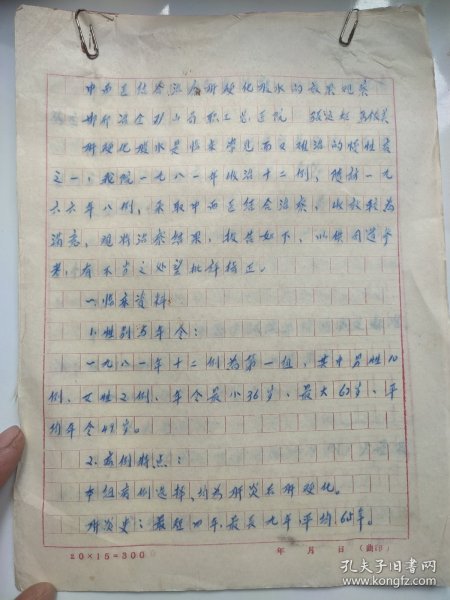 中西医结合治疗肝硬化腹水的效果观察
邯邢冶金矿山局职工总医院
肝硬化腹水是临床常见而又难治的慢性病
之一，我院一九八一年收治十二例，随访一九
六六年八例，采取中西医结合治疗，收效较为
满意，现将治疗结果，报告如下，以供同道参
考，有不当之处望批评指正。
一、临床资料：
1、性别与年令：
一九八一年十二例为第一组，其中男性10
例，女性2例，年令最小36岁，最大63岁，平
均年令48岁。
2、病例特点：
本组病例选择，均为肝炎后肝硬化。
肝炎史：最短四年，最长九年，平均6.5年。
20×15=300
年 月 日
孔夫子旧书网
www.kongfz.com